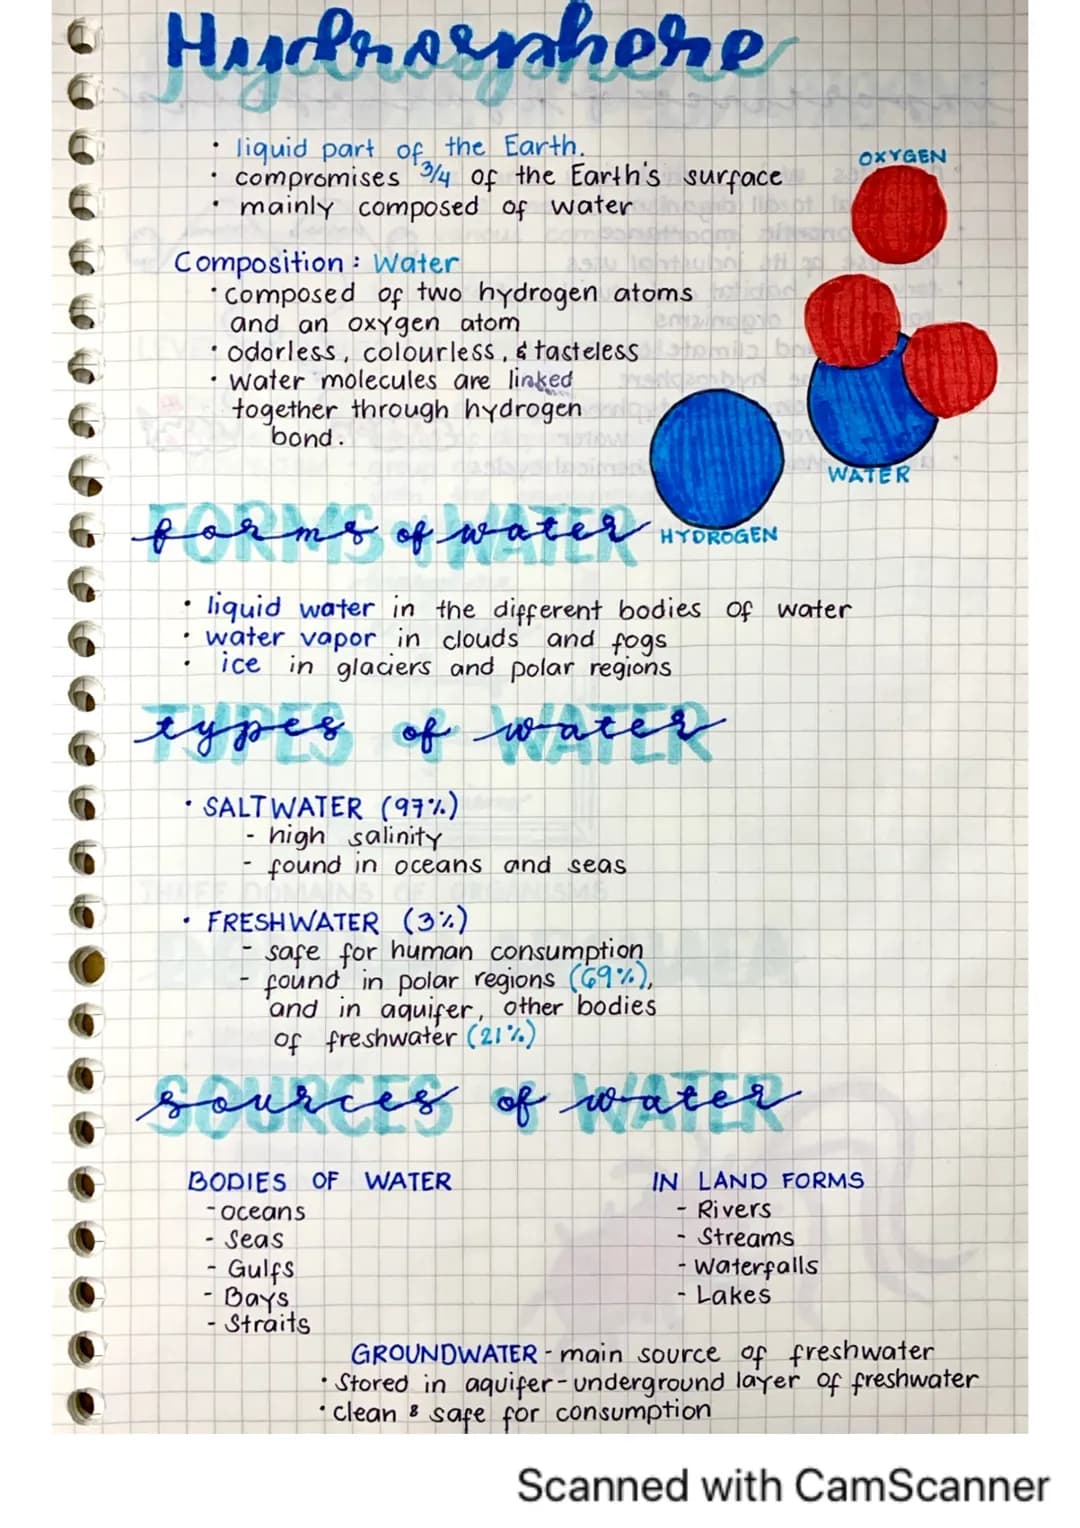 Hydrosphere
• liquid part of the Earth.
• compromises 3/4 of the Earth's surface
• mainly composed of water
OXYGEN
Composition: Water
• composed of two hydrogen atoms
and an oxygen atom
• odorless, colourless, & tasteless
• water molecules are linked
together through hydrogen
bond.
WATER
HYDROGEN
FORMS of WATER
• liquid water in the different bodies of water
• water vapor in clouds and fogs
• ice in glaciers and polar regions
TYPES of WATER
• SALTWATER (97%)
- high salinity
- found in oceans and seas
• FRESHWATER (3%)
- safe for human consumption
- found in polar regions (69%),
and in aquifer, other bodies
of freshwater (21%)
SOURCES of WATER
BODIES OF WATER
- oceans
- Seas
- Gulfs
- Bays
- Straits
IN LAND FORMS
- Rivers
- Streams
- Waterfalls
- Lakes
GROUNDWATER - main source of freshwater
• Stored in aquifer - underground layer of freshwater
• clean & safe for consumption
Scanned with CamScanner